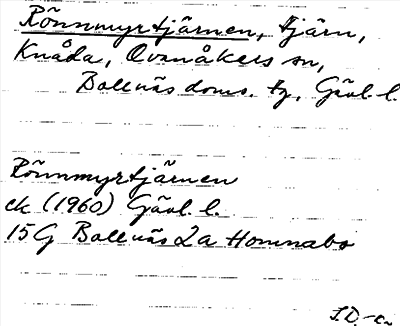 Rönnmyrtjärnen, tjärn,
Knåda, Ovanåkers sn,
Bollnäs doms. tg, Gävl. l.
Rönnmyrtjärnen
ek (1960) Gävl. l.
15G Bollnäs 2a Homnabo